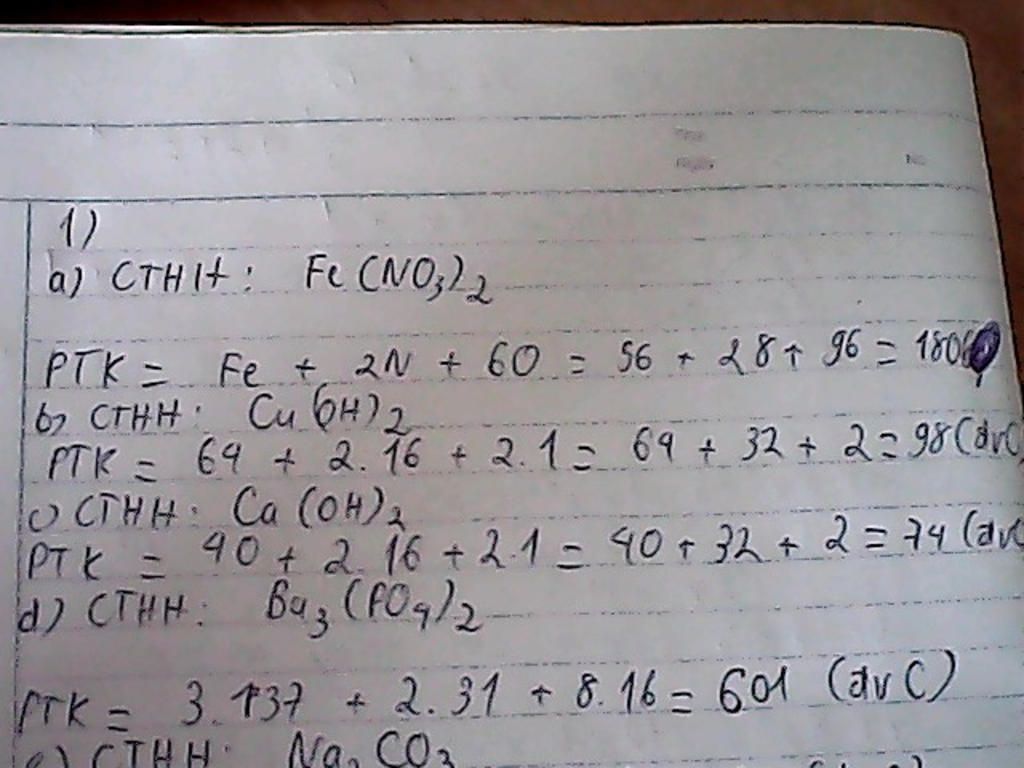 1)
a) CTHH: Fe(NO3)2
PTK = Fe + 2N + 6O = 56 + 28 + 96 = 180
b) CTHH: Cu(OH)2
PTK = 64 + 2.16 + 2.1 = 64 + 32 + 2 = 98 (đvC)
c) CTHH: Ca(OH)2
PTK = 40 + 2.16 + 2.1 = 40 + 32 + 2 = 74 (đvC
d) CTHH: Ba3(PO4)2
PTK = 3.137 + 2.31 + 8.16 = 601 (đvC)
e) CTHH: Na2CO3